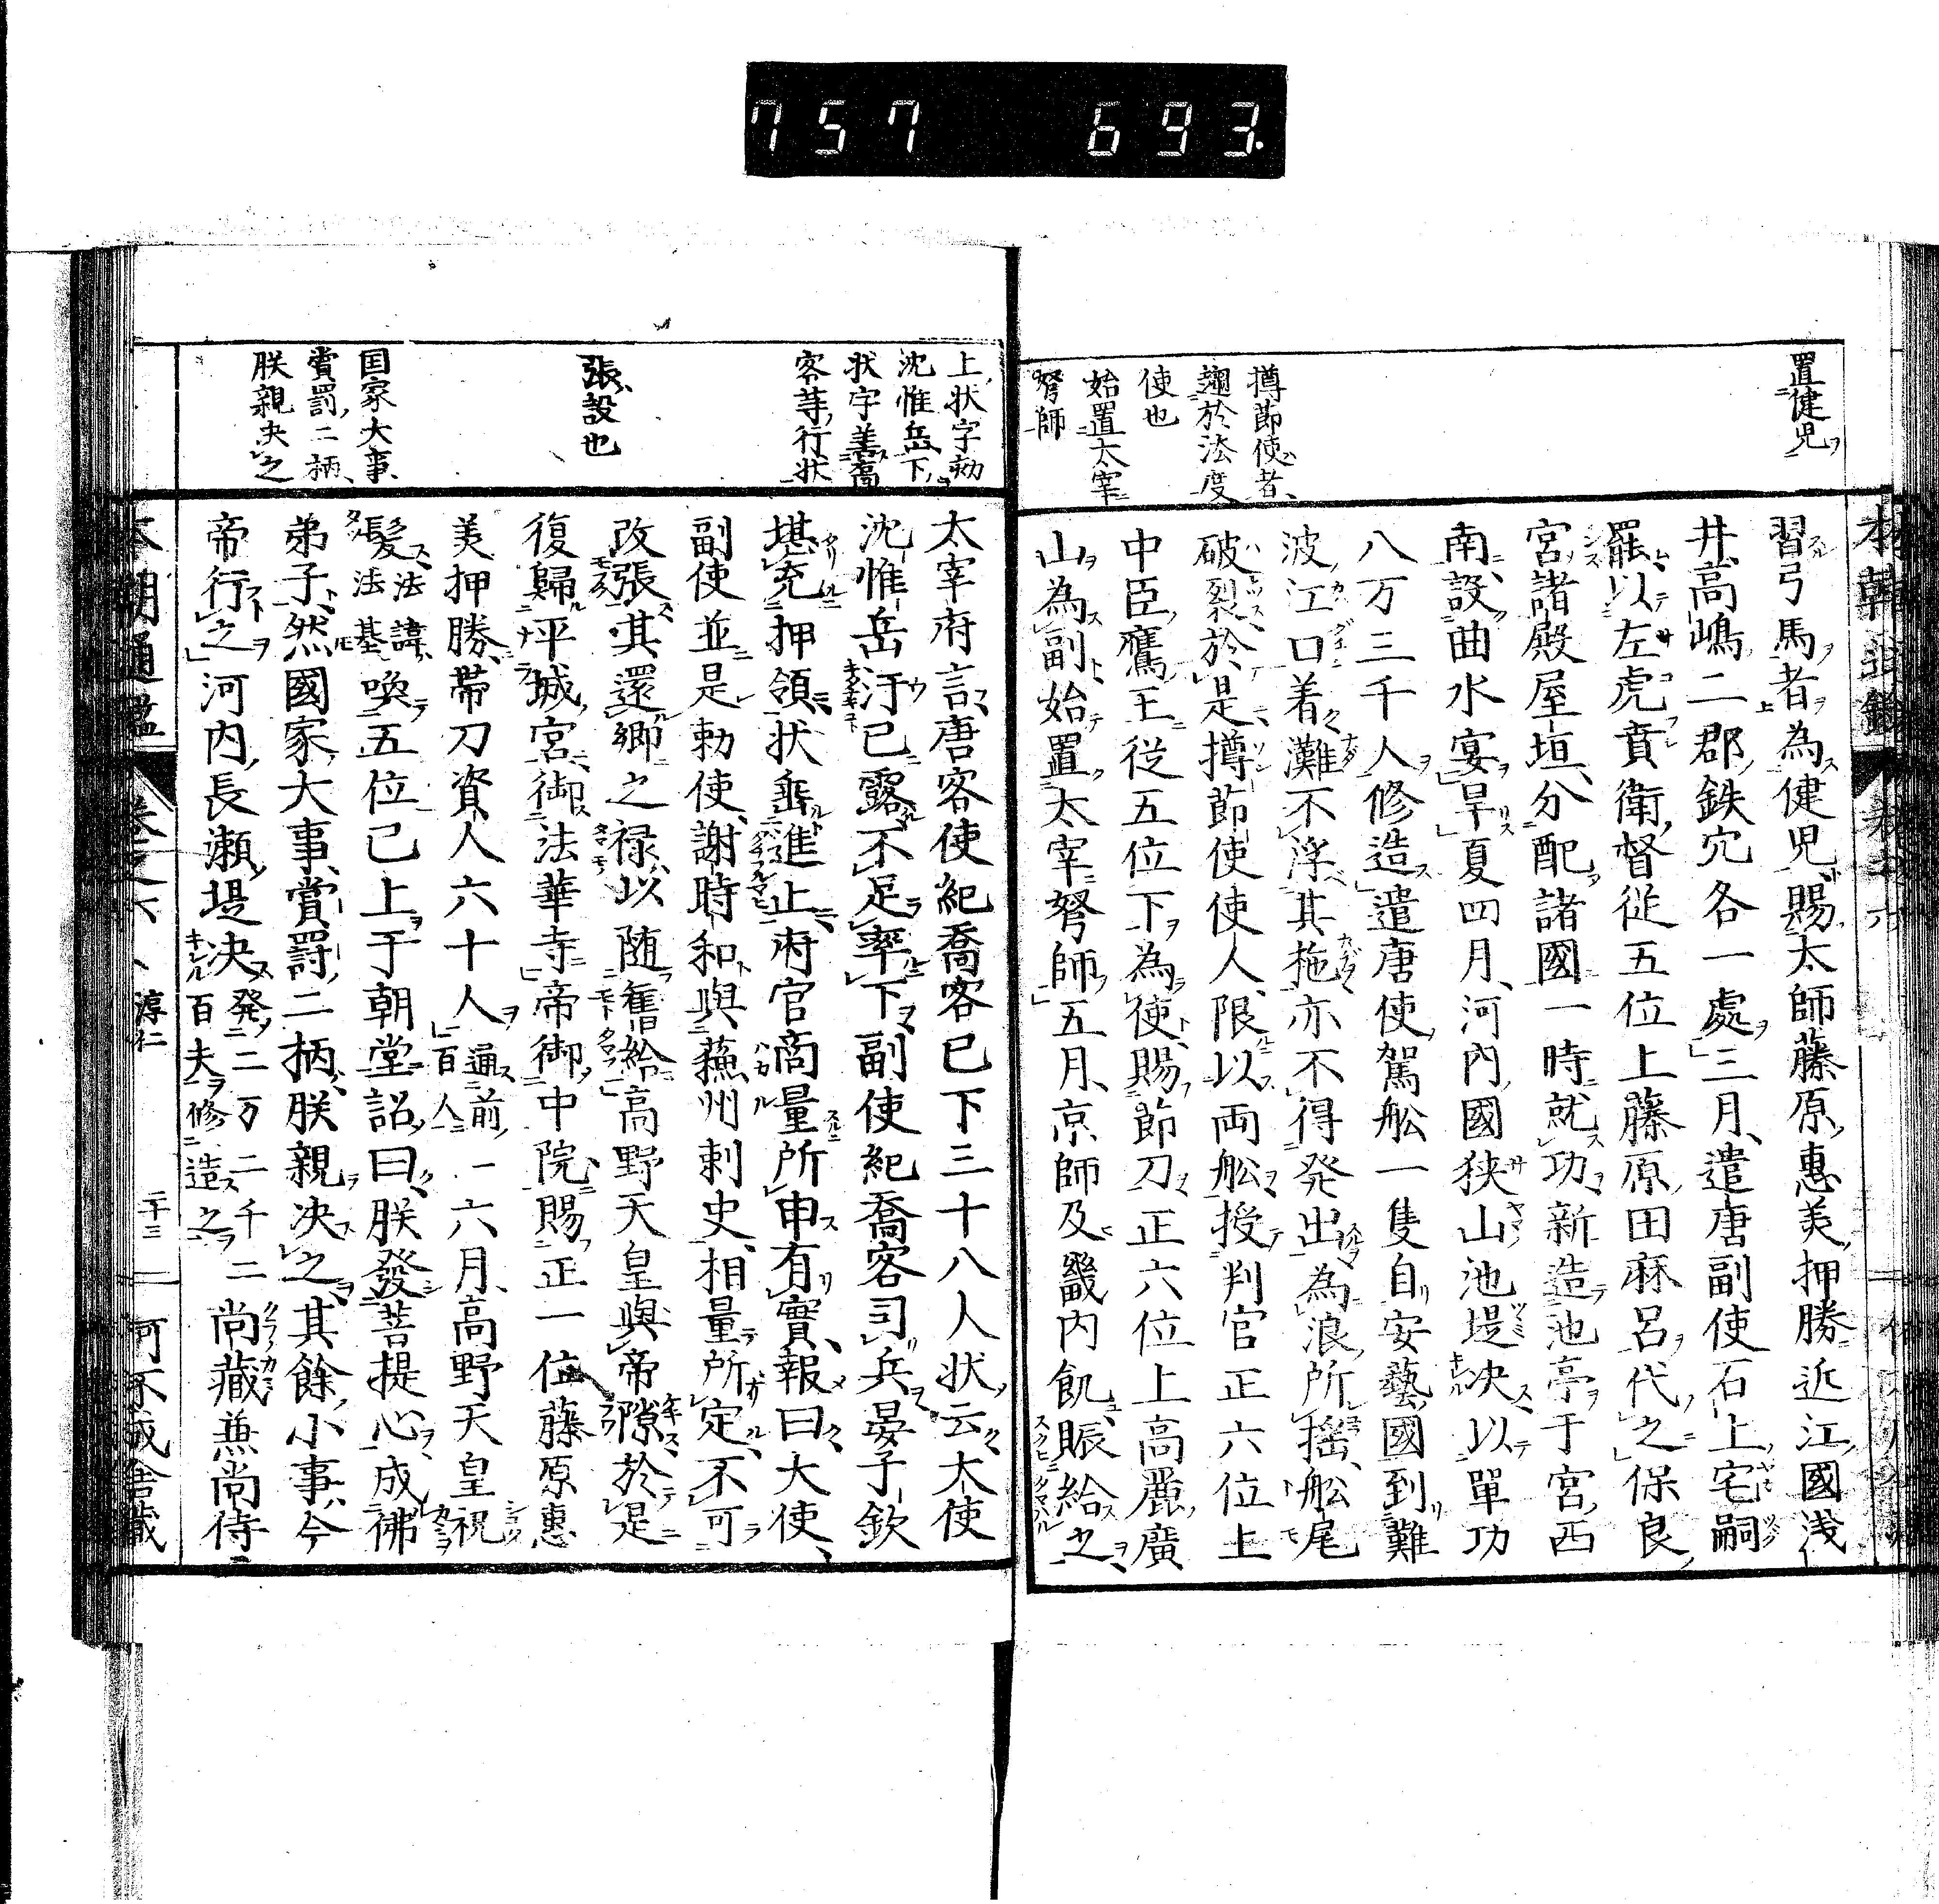 757 693.
置健児
撙節使者、
趣於法度
使也
始置太宰
弩師
習弓馬者為健児、賜太師藤原惠美押勝近江國浅
井高嶋二郡鉄穴各一處三月、遣唐副使石上宅嗣
罷以左虎賁衛督従五位上藤原田麻呂代之保良
宮諸殿屋垣、分配諸國一時就功新造池亭于宮西
南、設曲水宴旱夏四月、河内國狭山池堤决以單功
八万三千人修造遣唐使駕舩一隻自安藝國到難
波江口着灘不浮其拖亦不得発出為浪所揺舩尾
破裂於是撙節使使人限以両舩授判官正六位上
中臣鷹主従五位下為使賜節刀正六位上高麗廣
山為副始置太宰弩師五月、京師及畿内飢賑給之、
上状字勅
沈惟岳下、
状字盖喬
客等行状
張、設也
国家大事、
賞罰、二柄、
朕親决之
太宰府言、唐客使紀喬客已下三十八人状云大使
沈惟岳汙已露不足率下副使紀喬客司兵晏子欽
堪充押領状垂進止府官商量所申有實、報曰大使、
副使並是勅使、謝時和與蘓州刺史、相量所定、不可
改張其還卿之禄、以随舊給高野天皇與帝隙於是
復歸平城宮、御法華寺帝御中院、賜正一位藤原惠
美押勝帯刀資人六十人通前一百人六月、高野天皇祝
髪法諱法基喚五位已上于朝堂詔曰朕發菩提心成佛
弟子然國家大事、賞罰二柄、朕親决之其餘小事、今
帝行之河内長瀬堤决発二万二千二百夫修造之尚藏兼尚侍
本朝通鑑 卷之六 淳仁 二十三